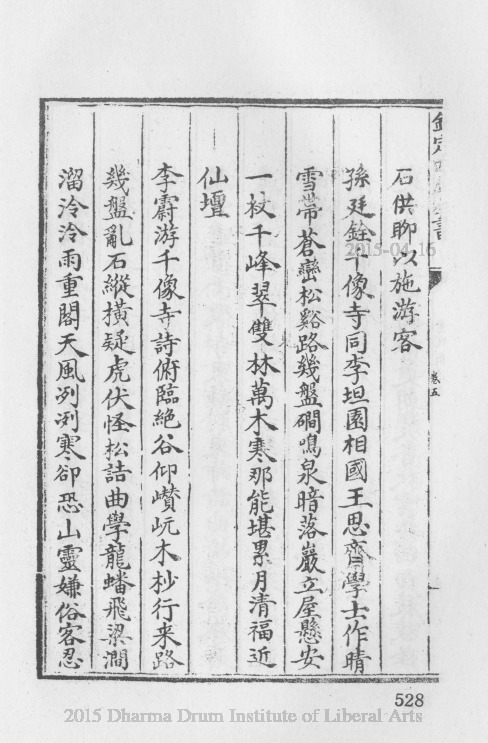 欽定四庫全書
卷五
石供聊以施游客
孫廷銓千像寺同李坦園相國王思齊學士作晴
雪帶蒼巒松谿路幾盤磵鳴泉暗落巖立屋懸安
一杖千峰翠雙林萬木寒那能堪累月清福近
仙壇
李霨游千像寺詩俯臨絶谷仰巑岏木杪行来路
幾盤亂石縱橫疑虎伏怪松詰曲學龍蟠飛梁澗
溜泠泠雨重閣天風冽冽寒卻恐山靈嫌俗客忍
528
2015-04-16
2015 Dharma Drum Institute of Liberal Arts